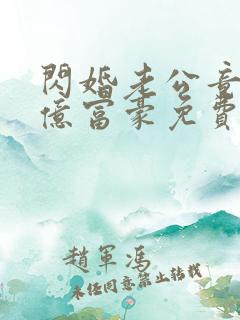 閃婚老公竟
億富豪免費
趙軍馮
未經同意禁止轉載